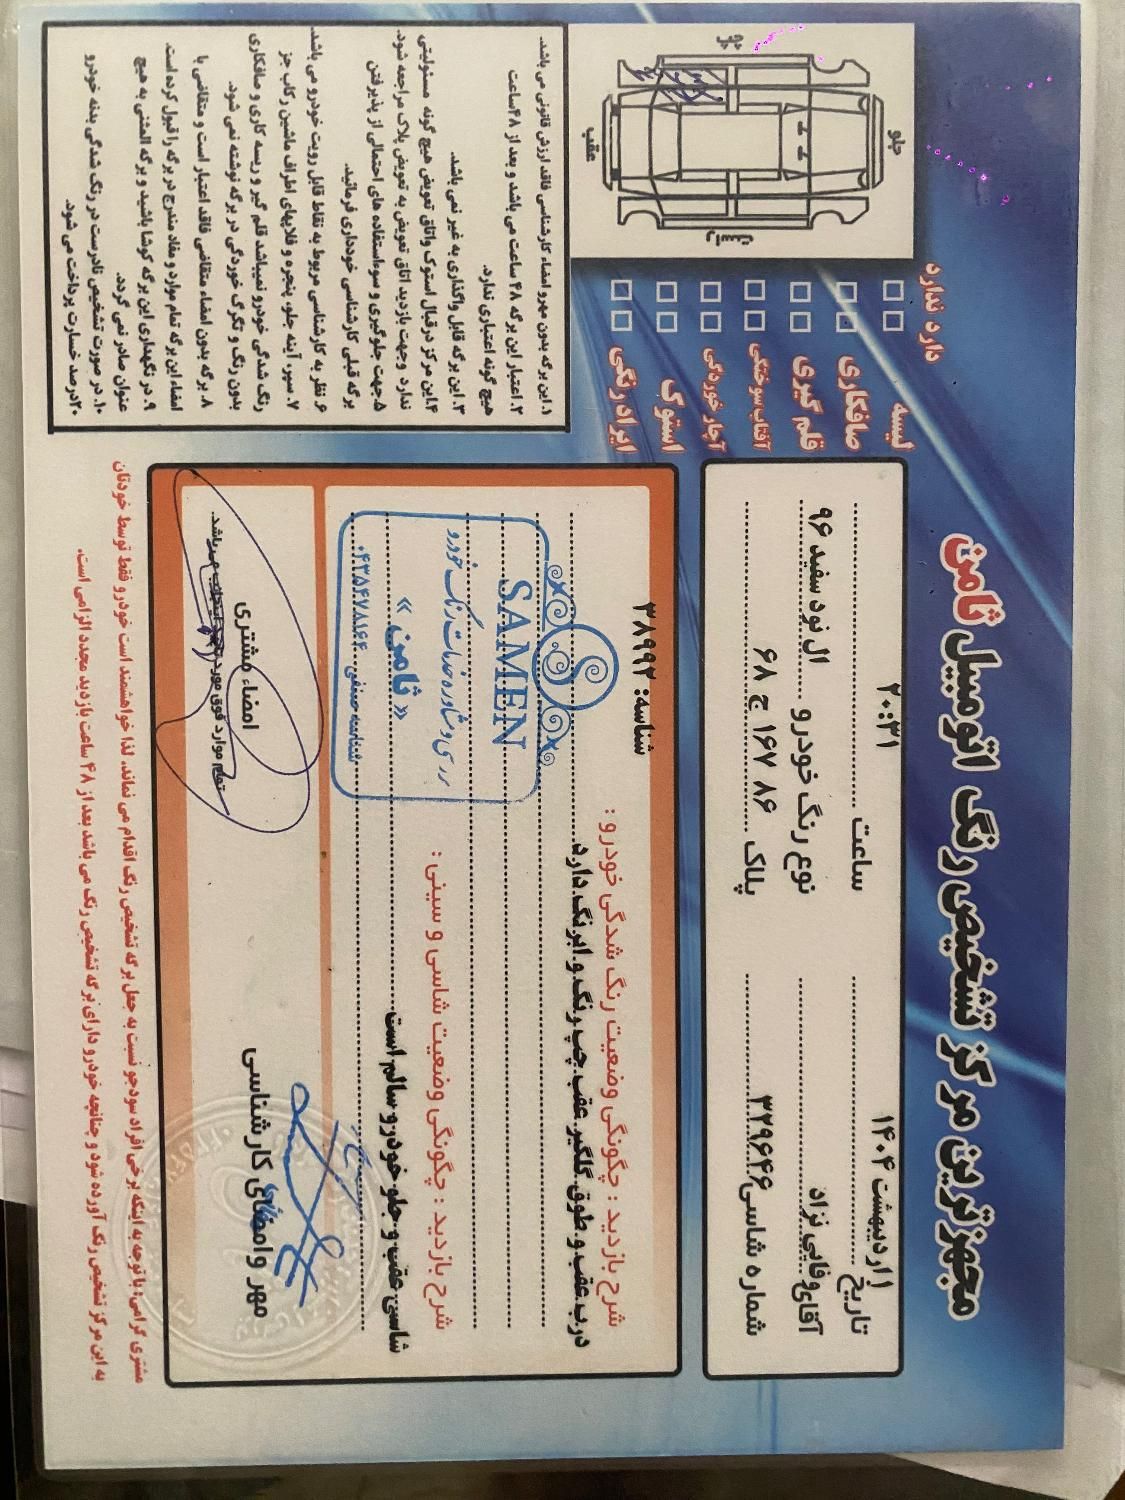 مجهزترین مرکز تشخیص رنگ اتومبیل ثامن
تاریخ ۱ اردیبهشت ۱۴۰۴
ساعت ۲۰:۳۱
آقای وفایی نژاد
نوع رنگ خودرو ال نود سفید ۹۶
شماره شاسی ۳۳۹۶۴۶
پلاک ۸۶ ۱۶۷ ج ۶۸
دارد ندارد
لیسه
صافکاری
قلم گیری
آفتاب سوختگی
آچار خوردگی
استوک
ایراد رنگی
جلو
عقب
راست
چپ
شناسه: ۳۸۹۹۲
شرح بازدید : چگونگی وضعیت رنگ شدگی خودرو :
درب عقب و طوق گلگیر عقب چپ رنگ و ابرنگ دارد.
شرح بازدید : چگونگی وضعیت شاسی و سینی :
شاسی عقب و جلو خودرو سالم است
SAMEN
« ثامن »
شناسه صنفی ۰۴۳۵۴۷۸۱۶۴
مهر وامضای کارشناسی
امضاء مشتری
تمام موارد فوق مورد تایید اینجانب می باشد.
۱. این برگه بدون مهرو امضاء کارشناسی فاقد ارزش قانونی می باشد.
۲. اعتبار این برگه ۴۸ ساعت می باشد و بعد از ۴۸ساعت
هیچ گونه اعتباری ندارد.
۳. این برگه قابل واگذاری به غیر نمی باشد.
۴.این مرکز درقبال استوک واتاق تعویض هیچ گونه مسئولیتی
ندارد وجهت بازدید اتاق تعویض به تعویض پلاک مراجعه شود.
۵.جهت جلوگیری و سوءاستفاده های احتمالی از پذیرفتن
برگه قبلی کارشناسی خودداری فرمائید.
۶. نظر به کارشناسی مربوط به نقاط قابل رویت خودرو می باشد.
۷. سپر، آینه جلو، پنجره و فلاپهای اطراف ماشین رکاب جز
رنگ شدگی خودرو نمیباشد قلم گیر و ریسه کاری و صافکاری
بدون رنگ و تگرگ خوردگی در برگه نوشته نمی شود.
۸. برگه بدون امضاء متقاضی فاقد اعتبار است و متقاضی با
امضاء این برگه تمام موارد و مفاد مندرج در برگه را قبول کرده است.
۹. در نگهداری این برگه کوشا باشید و برگه المثنی به هیچ
عنوان صادر نمی گردد.
۱۰. در صورت تشخیص نادرست در رنگ شدگی بدنه خودرو
۲۰درصد خسارت پرداخت می شود.
مشتری گرامی: با توجه به اینکه برخی افراد سودجو نسبت به جعل برگه تشخیص رنگ اقدام می نمایند، لذا خواهشمند است خودرو فقط توسط خودتان
به این مرکز تشخیص رنگ آورده شود و چنانچه خودرو دارای برگه تشخیص رنگ می باشد بعد از ۴۸ ساعت بازدید مجدد الزامی است.